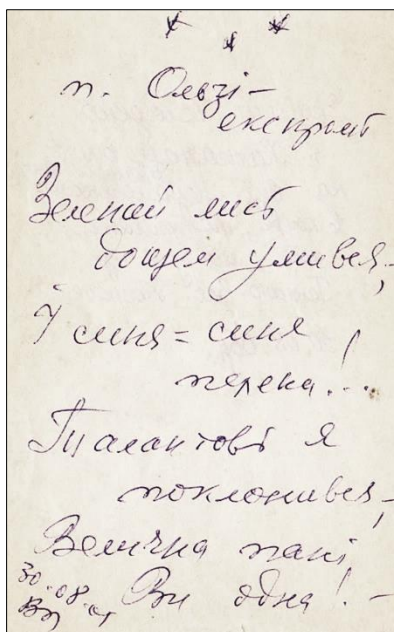 * * *
п. Ользі –
експромт
Зелений лист
дощем умився, –
І синя = синя
Талантові я
поклонився, –
Велична пані,
Ви одна! –
30.08.01